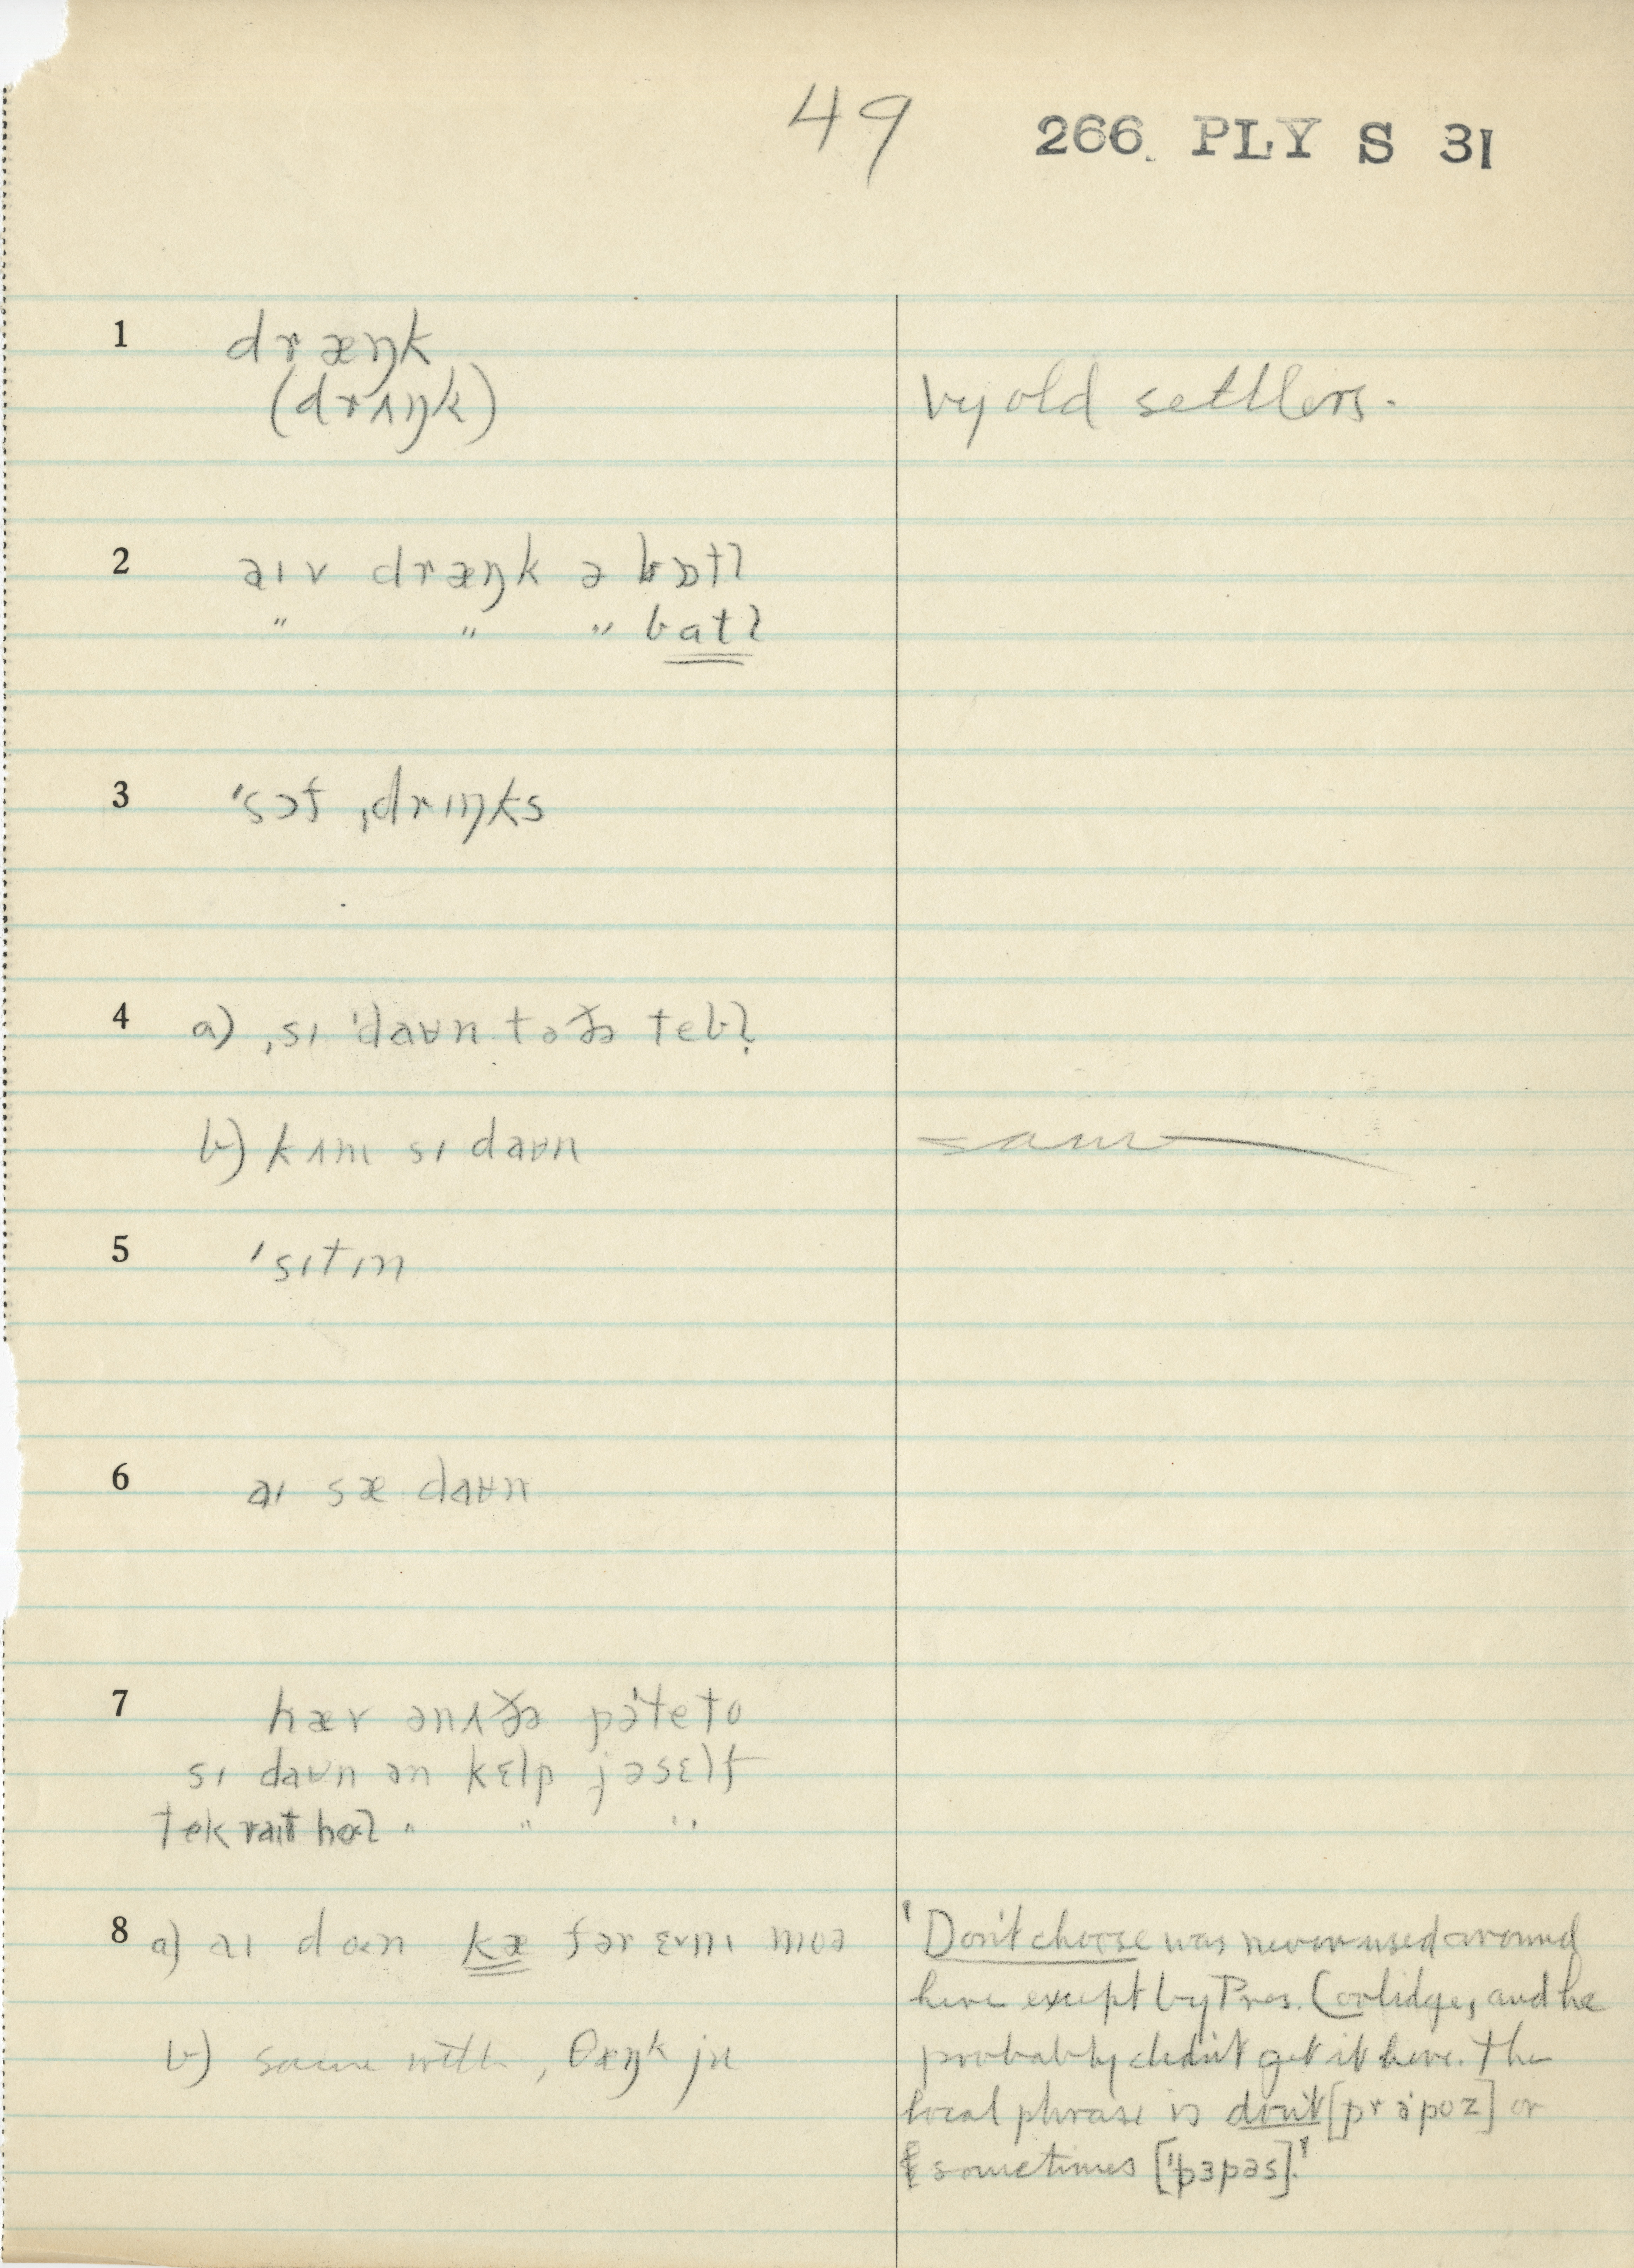 49 266 PLY S 31
1 dræŋk
(drʌŋk) by old settlers.
2 aɪv dræŋk ə bɒtl̩
" " " batl̩
3 ˈsɔf ˌdrɪŋks
4 a) ˌsɪ ˈdaʊn tə ðə tebl̩
b) kʌm sɪ daʊn same
5 ˈsɪtɪn
6 aɪ sæ daʊn
7 hæv ənʌðə pəˈteto
sɪ daʊn ən hɛlp jəsɛlf
tek raɪt hol " " "
8 a) aɪ don kæ fər ɛvnɪ moə
'Don't choose was never used around
here except by Pres. Coolidge, and he
b) same with, θæŋk ju
probably didn't get it here. The
local phrase is don't [prəˈpoz] or
sometimes [ˈpɜpəs].'